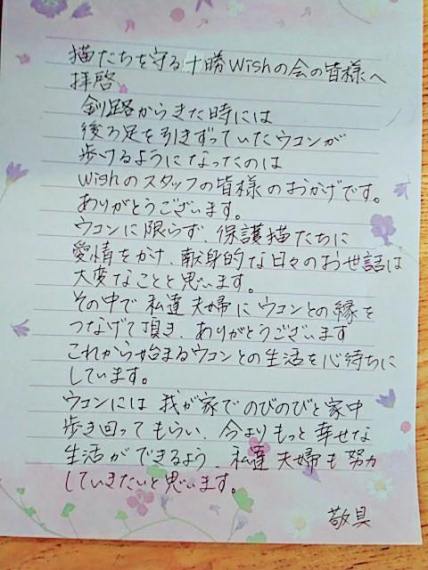 猫たちを守る十勝Wishの会の皆様へ
拝啓
釧路からきた時には
後ろ足を引きずっていたウコンが
歩けるようになったのは
Wishのスタッフの皆様のおかげです。
ありがとうございます。
ウコンに限らず、保護猫たちに
愛情をかけ、献身的な日々のお世話は
大変なことと思います。
その中で私達夫婦にウコンとの縁を
つなげて頂き、ありがとうございます
これから始まるウコンとの生活を心待ちに
しています。
ウコンには我が家でのびのびと家中
歩き回ってもらい、今よりもっと幸せな
生活ができるよう、私達夫婦も努力
していきたいと思います。
敬具